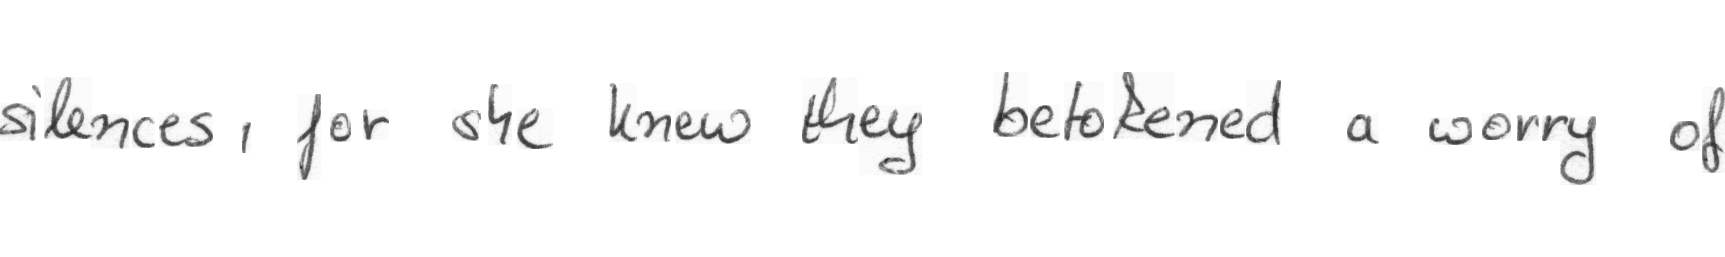 silences, for she knew they betokened a worry of